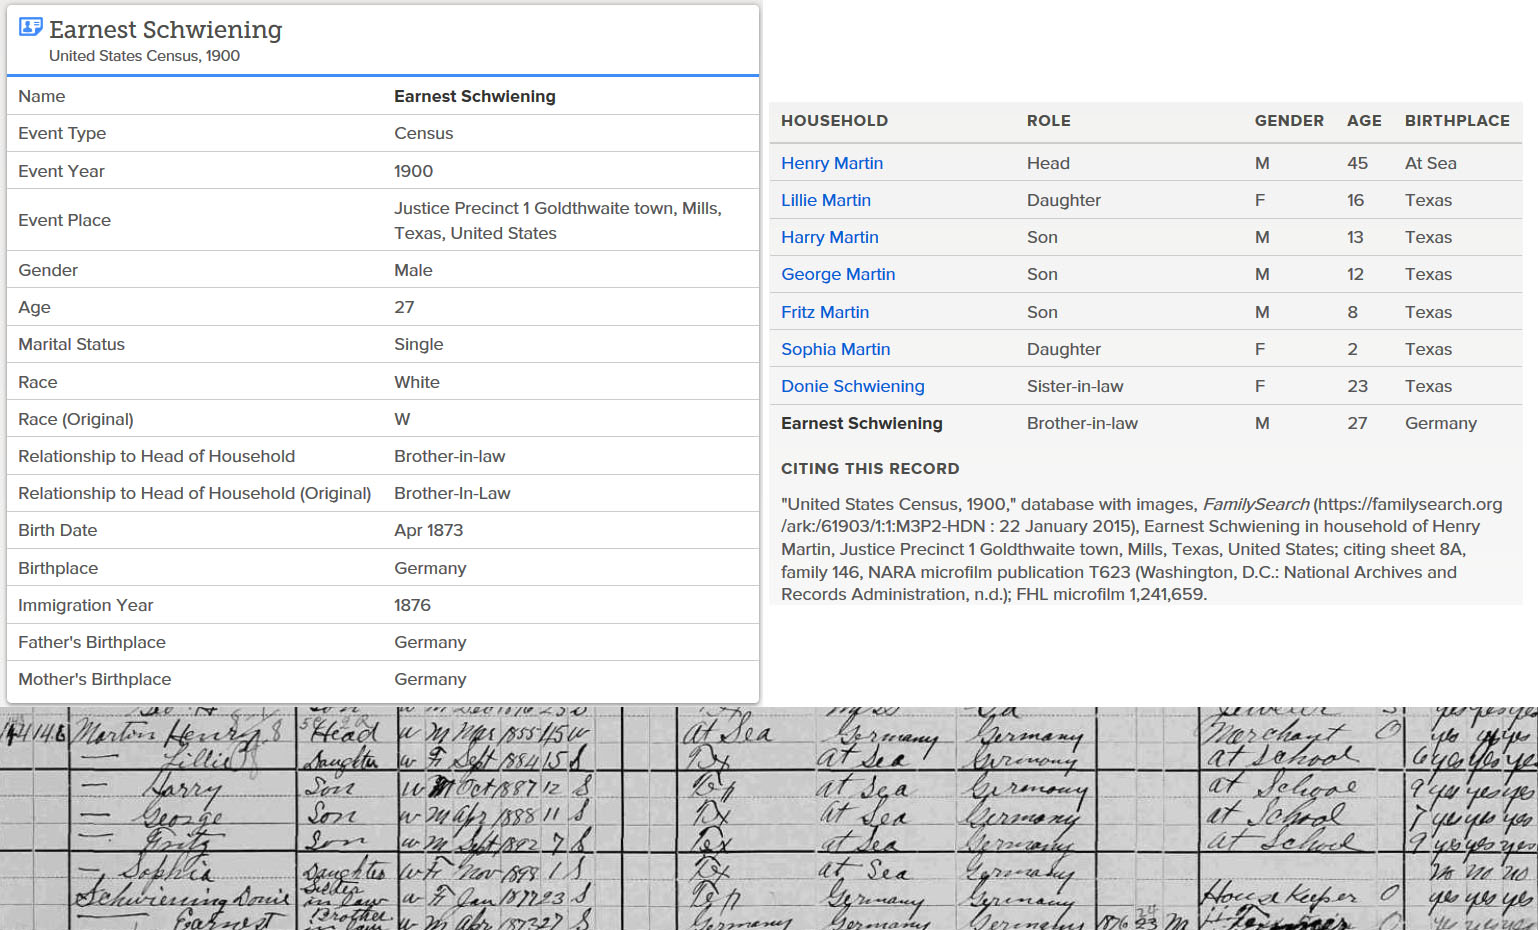 Earnest Schwiening
United States Census, 1900
Name Earnest Schwiening
Event Type Census
Event Year 1900
Event Place Justice Precinct 1 Goldthwaite town, Mills,
Texas, United States
Gender Male
Age 27
Marital Status Single
Race White
Race (Original) W
Relationship to Head of Household Brother-in-law
Relationship to Head of Household (Original) Brother-In-Law
Birth Date Apr 1873
Birthplace Germany
Immigration Year 1876
Father's Birthplace Germany
Mother's Birthplace Germany
HOUSEHOLD ROLE GENDER AGE BIRTHPLACE
Henry Martin Head M 45 At Sea
Lillie Martin Daughter F 16 Texas
Harry Martin Son M 13 Texas
George Martin Son M 12 Texas
Fritz Martin Son M 8 Texas
Sophia Martin Daughter F 2 Texas
Donie Schwiening Sister-in-law F 23 Texas
Earnest Schwiening Brother-in-law M 27 Germany
CITING THIS RECORD
"United States Census, 1900," database with images, FamilySearch (https://familysearch.org
/ark:/61903/1:1:M3P2-HDN : 22 January 2015), Earnest Schwiening in household of Henry
Martin, Justice Precinct 1 Goldthwaite town, Mills, Texas, United States; citing sheet 8A,
family 146, NARA microfilm publication T623 (Washington, D.C.: National Archives and
Records Administration, n.d.); FHL microfilm 1,241,659.
146 Martin Henry Head w M Mar 1855 45 w At Sea Germany Germany Merchant 0 yes yes yes
— Lillie Daughter w F Sept 1884 15 S Tex at Sea Germany at School 6 yes yes yes
— Harry Son w M Oct 1887 12 S Tex at Sea Germany at School 9 yes yes yes
— George Son w M Apr 1888 11 S Tex at Sea Germany at School 7 yes yes yes
— Fritz Son w M Sept 1892 7 S Tex at Sea Germany at School 9 yes yes yes
— Sophia Daughter w F Nov 1898 1 S Tex at Sea Germany no no no
Schwiening Donie Sister in law w F Jan 1877 23 S Tex Germany Germany House Keeper 0 yes yes yes
— Earnest Brother in law w M Apr 1873 27 S Germany Germany Germany 1876 23